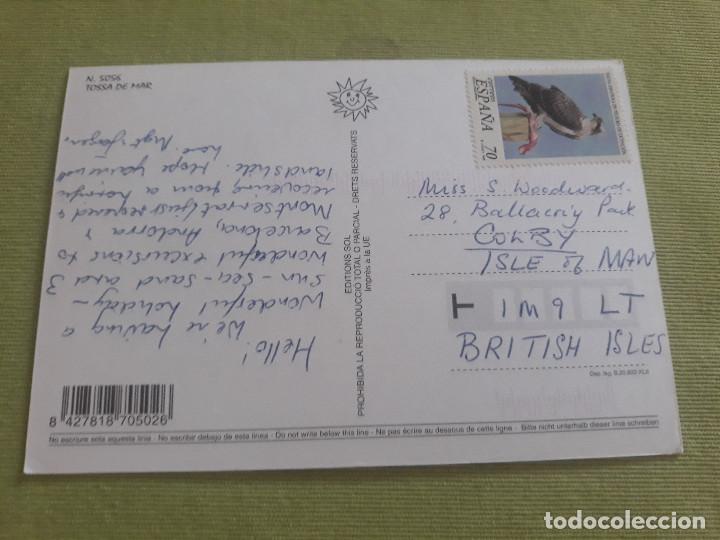 N. 5056
TOSSA DE MAR
Hello!
We're having a
Wonderful holiday –
Sun – Sea – Sand and 3
Wonderful excursions to
Barcelona, Andorra &
Montserrat (just reopened &
recovering from a
landslide. Hope
love.
EDITIONS SOL
PROHIBIDA LA REPRODUCCIÓ TOTAL O PARCIAL - DRETS RESERVATS
Imprès a la UE
CORREOS
ESPAÑA
70
Miss S. Woodward.
28, Ballacriy Park
COLBY
ISLE of MAN
T 1M9 LT
BRITISH ISLES
8 427818 705026
No escriure sota aquesta línia - No escribir debajo de esta línea - Do not write below this line - Ne pas écrire au dessous de cette ligne - Bitte nicht unterhalb dieser linie schreiben
todocoleccion